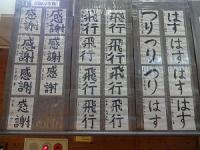 感謝
感謝
飛行
飛行
つり
はす
感謝
感謝
飛行
飛行
つり
はす
感謝
感謝
飛行
飛行
つり
はす
感謝
感謝
飛行
飛行
はす
はす